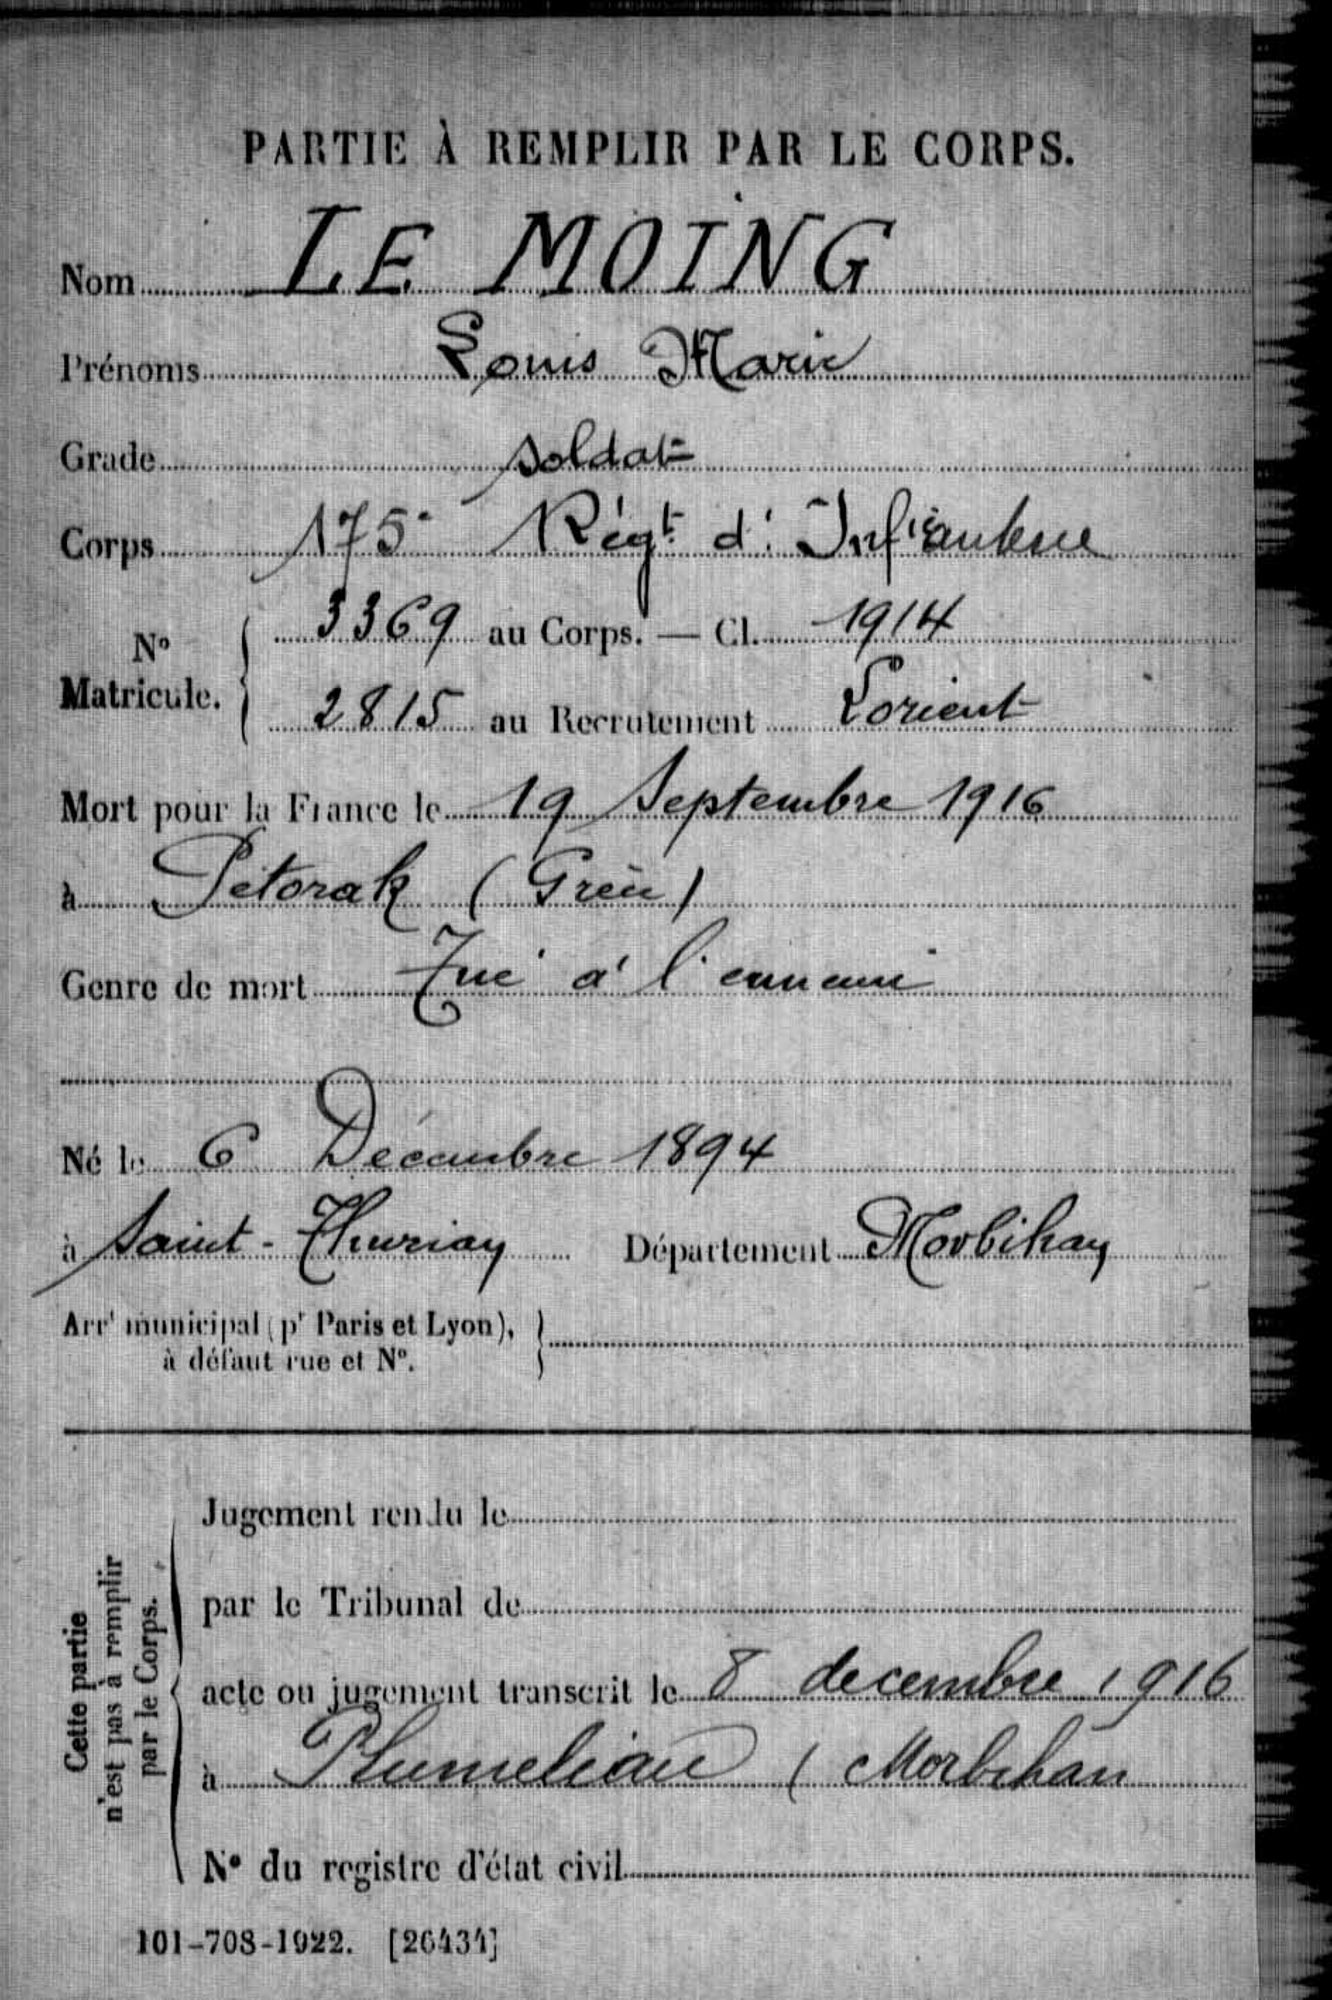 PARTIE À REMPLIR PAR LE CORPS.
Nom LE MOING
Prénoms Louis Marie
Grade soldat
Corps 175e Régt d'Infanterie
No Matricule. 3369 au Corps. — Cl. 1914
2815 au Recrutement Lorient
Mort pour la France le 19 Septembre 1916
à Pétorak (Grèce)
Genre de mort Tué à l'ennemi
Né le 6 Décembre 1894
à Saint-Thuriay Département Morbihan
Arrt municipal (pr Paris et Lyon),
à défaut rue et No.
Cette partie
n'est pas à remplir
par le Corps.
Jugement rendu le
par le Tribunal de
acte ou jugement transcrit le 8 decembre 1916
à Plumeliau (Morbihan
No du registre d'état civil
101-708-1922. [26434]